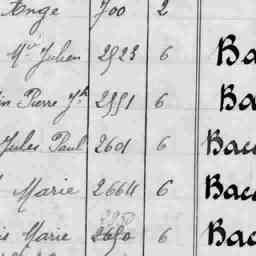 Ange 700 2
Julien 2523 6 Ba
Pierre 2551 6 Ba
Jules Paul 2601 6 Bac
Marie 2664 6 Bac
Marie 2650 6 Bac